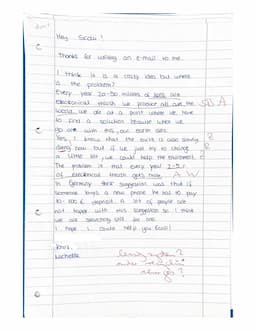 Hey Scott!
Thanks for writing an e-mail to me.
I think it is a crazy idea but where
is the problem?
Every year 20-50 millions of tons are
electronical trash we produce all over the SW A
world we are at a point where we have
to find a solution because when we
go on with this, our earth dies.
Yes, I know that the earth is also slowly
dying now but if we just try to change
a little bit, we could help the enviroment.
The problem is that every year 3-5%
of electronical trash gets more. A W
In Germany their suggestion was that if
someone buys a new phone he has to pay
10-100 € deposit. A lot of people are
not happy with this suggestion so I think
we are searching still for one.
I hope I could help you Scott!
Yours,